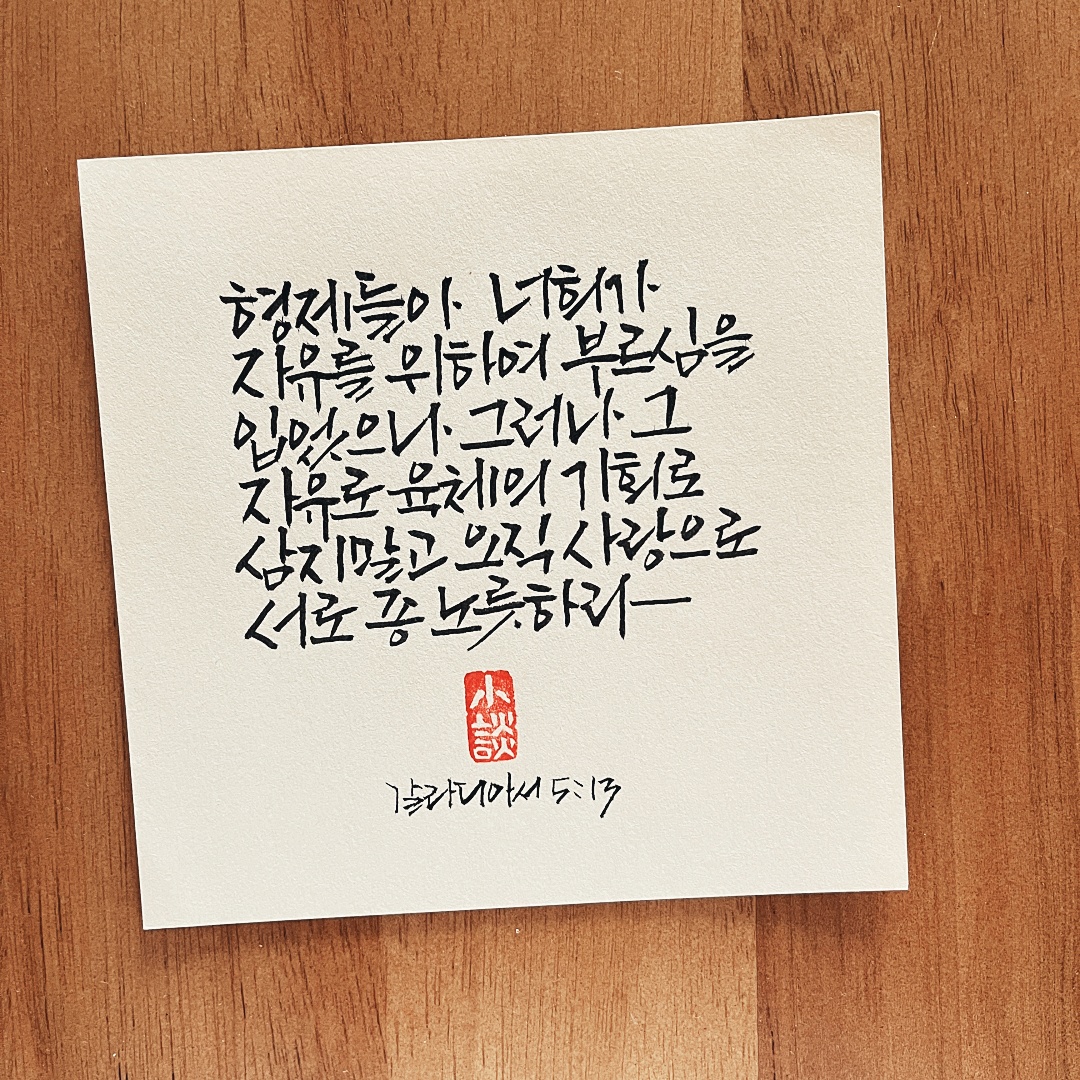 형제들아 너희가
자유를 위하여 부르심을
입었으나 그러나 그
자유로 육체의 기회로
삼지말고 오직 사랑으로
서로 종 노릇하라
小談
갈라디아서 5:13